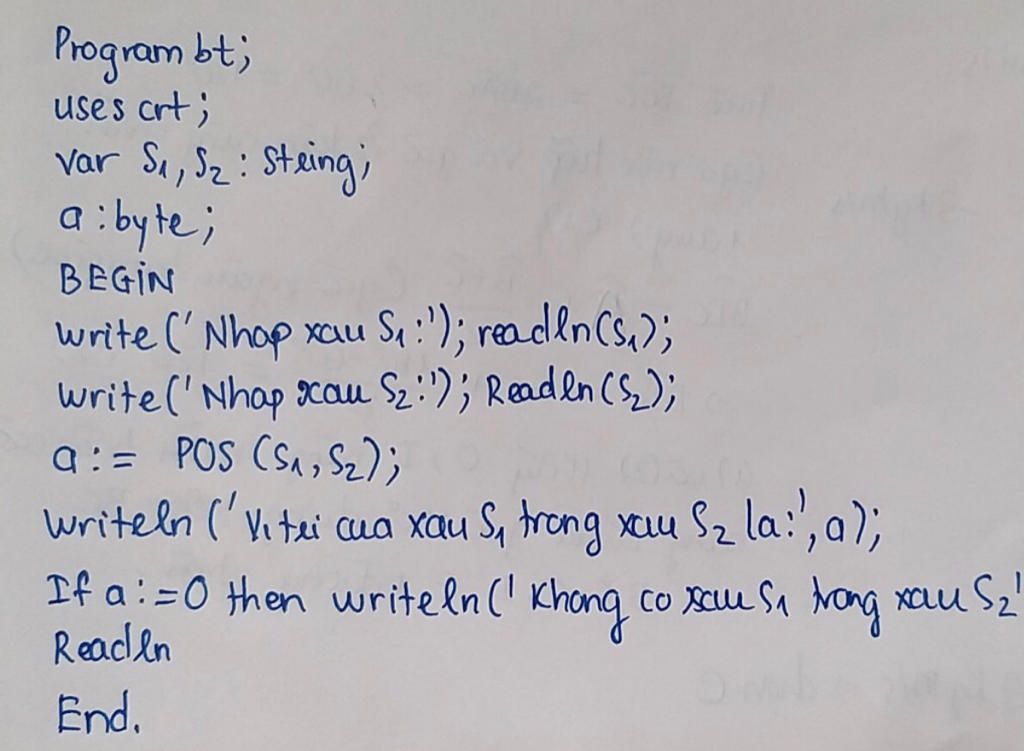 Program bt;
uses crt;
var S1, S2 : string;
a : byte;
BEGIN
write (' Nhap xau S1:'); readln(S1);
write(' Nhap xau S2:'); Readln (S2);
a := POS (S1, S2);
writeln (' Vi tri cua xau S1 trong xau S2 la:', a);
If a :=0 then writeln(' Khong co xau S1 trong xau S2'
Readln
End.